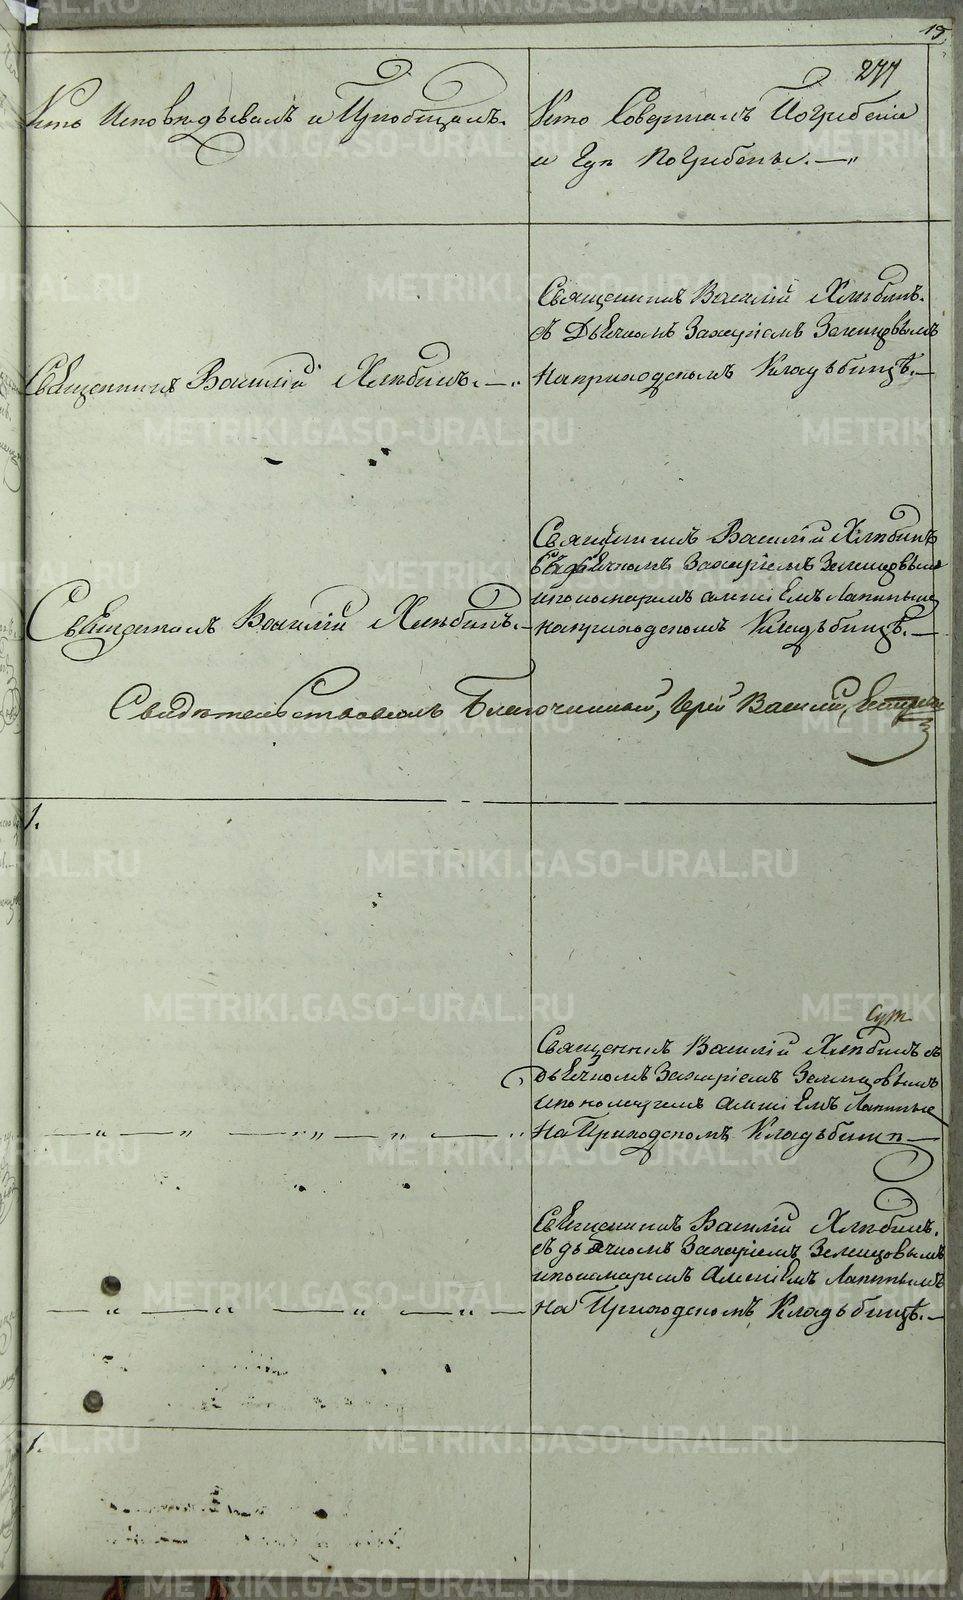 277
Кто Исповѣдывалъ и Пріобщалъ.
Кто Совершалъ Погребеніе
и Гдѣ Погребены.
Священникъ Василій Хлѣбинъ.
Священникъ Василій Хлѣбинъ.
съ Дьячкомъ Захаріемъ Земляновымъ
на приходскомъ Кладьбищѣ.
Священникъ Василій Хлѣбинъ.
Священникъ Василій Хлѣбинъ
съ дьячкомъ Захаріемъ
и пономаремъ Алексіемъ Лапинымъ
на приходскомъ Кладьбищѣ.
Свидѣтельствовалъ Благочинный, Іерей Василій
1.
Священникъ Василій Хлѣбинъ съ
Дьячкомъ Захаріемъ
и пономаремъ Алексіемъ Лапинымъ
На Приходскомъ Кладьбищѣ
Священникъ Василій Хлѣбинъ.
съ дьячкомъ Захаріемъ
и пономаремъ Алексіемъ Лапинымъ
На Приходскомъ Кладьбищѣ.
1.
METRIKI.GASO-URAL.RU